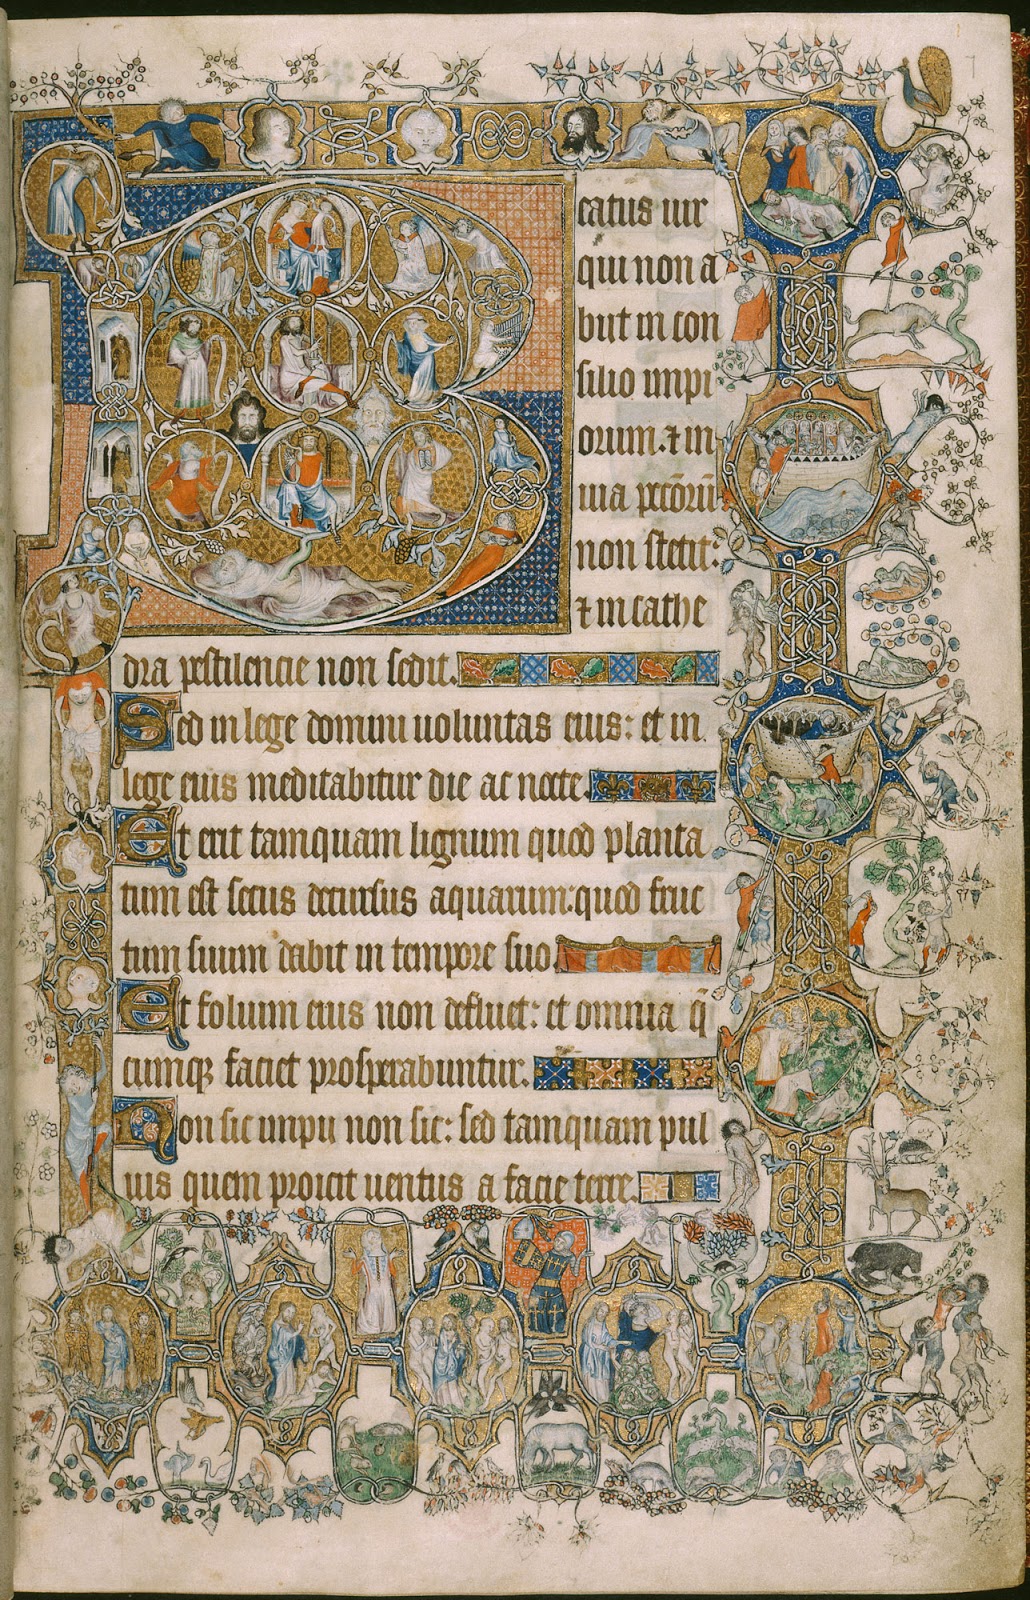 Beatus uir
qui non a
bijt in con
silio impi
orum. ⁊ in
uia peccōrū
non stetit:
⁊ in cathe
dra pestilencie non sedit.
Sed in lege domini uoluntas eius: et in
lege eius meditabitur die ac nocte.
Et erit tamquam lignum quod planta
tum est secus decursus aquarum: quod fruc
tum suum dabit in tempore suo.
Et folium eius non defluet: et omnia q̄
cumq; faciet prosperabuntur.
Non sic impii non sic: sed tamquam pul
uis quem proicit uentus a facie terre.